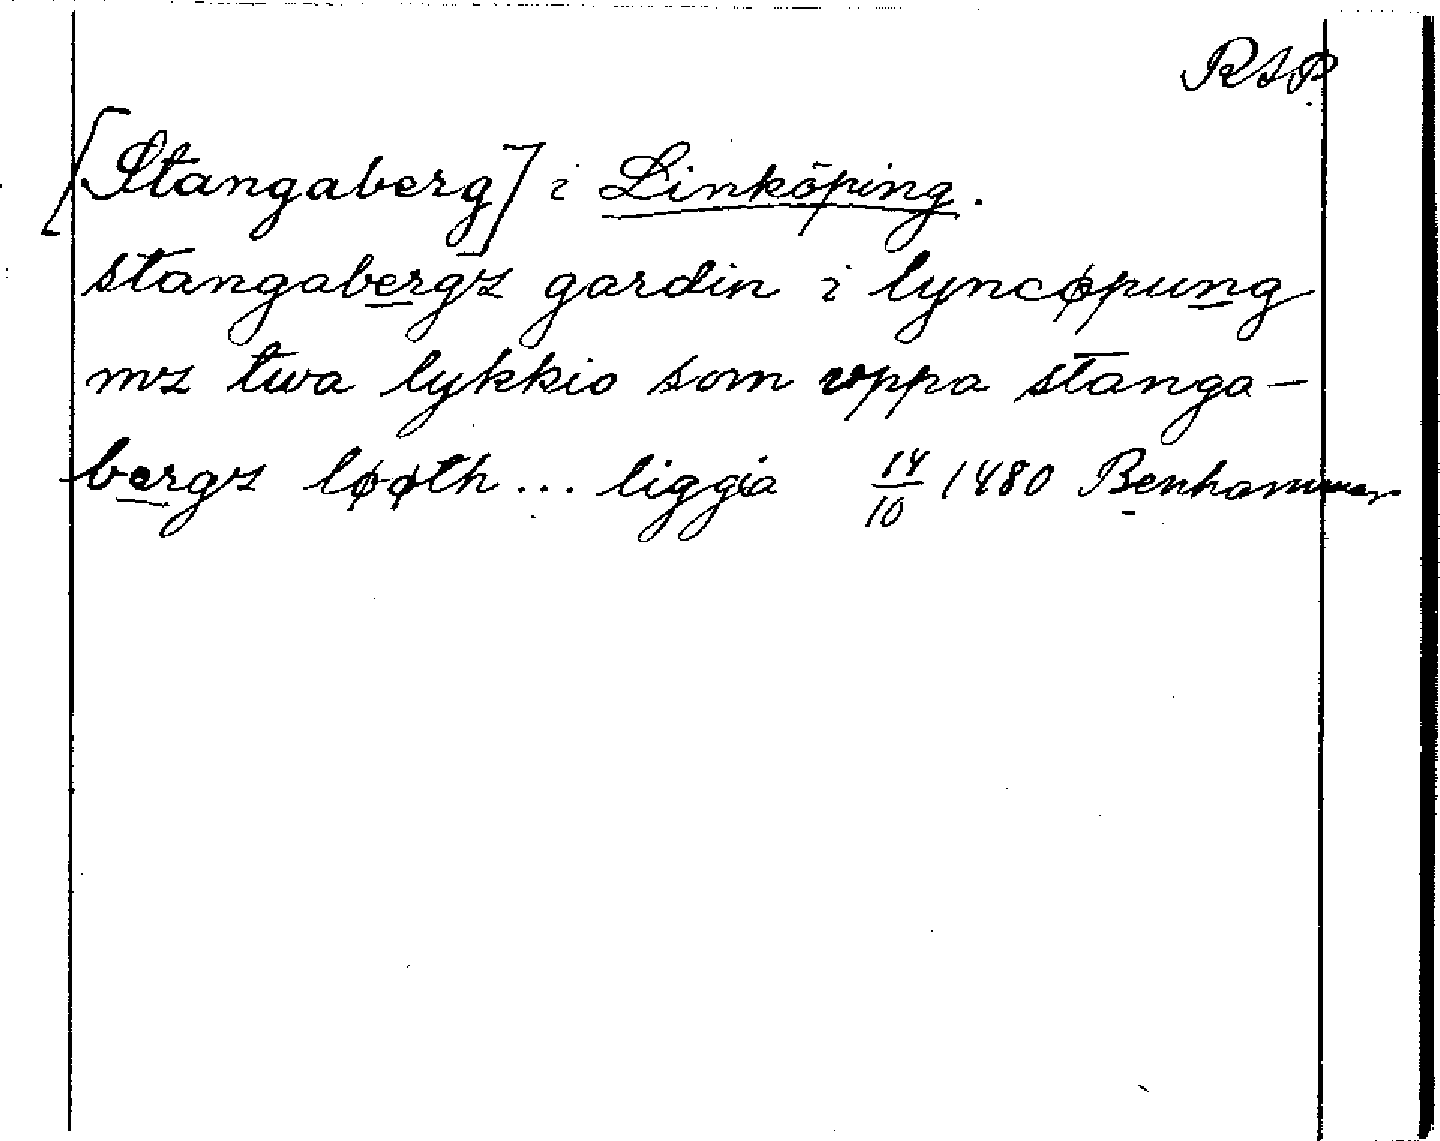 RAP
[Stangaberg] i Linköping.
stangabergz gardin i lyncøpung
mz twa lykkio som vppa stanga-
bergz løøth ... liggia 14/10 1480 Benhammar